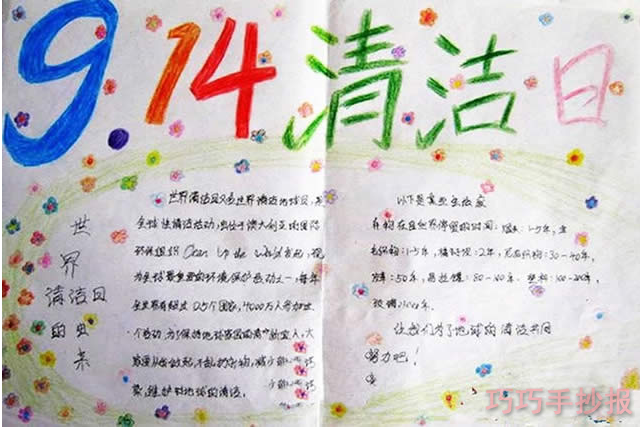 9.14清洁日
世界清洁日的由来
世界清洁日又名世界清洁地球日,是
全球性清洁活动,由位于澳大利亚的国际
环保组织 Clean Up the World 发起,现
为全球最重要的环境保护活动之一,每年
全世界有超过125个国家,4000万人参加这
个活动。为了保持地球家园的清洁宜人,大
家要从身边做起,不乱扔杂物,减少
维护好地球的清洁。
以下是
在自然界停留的时间:烟头:1-5年,
1-5年,橘子皮:2年,尼龙织物:30-40年,
皮革:50年,易拉罐:80-100年,塑料:100-200年,
玻璃:1000年。
让我们为了地球的清洁共同
努力吧!
巧巧手抄报